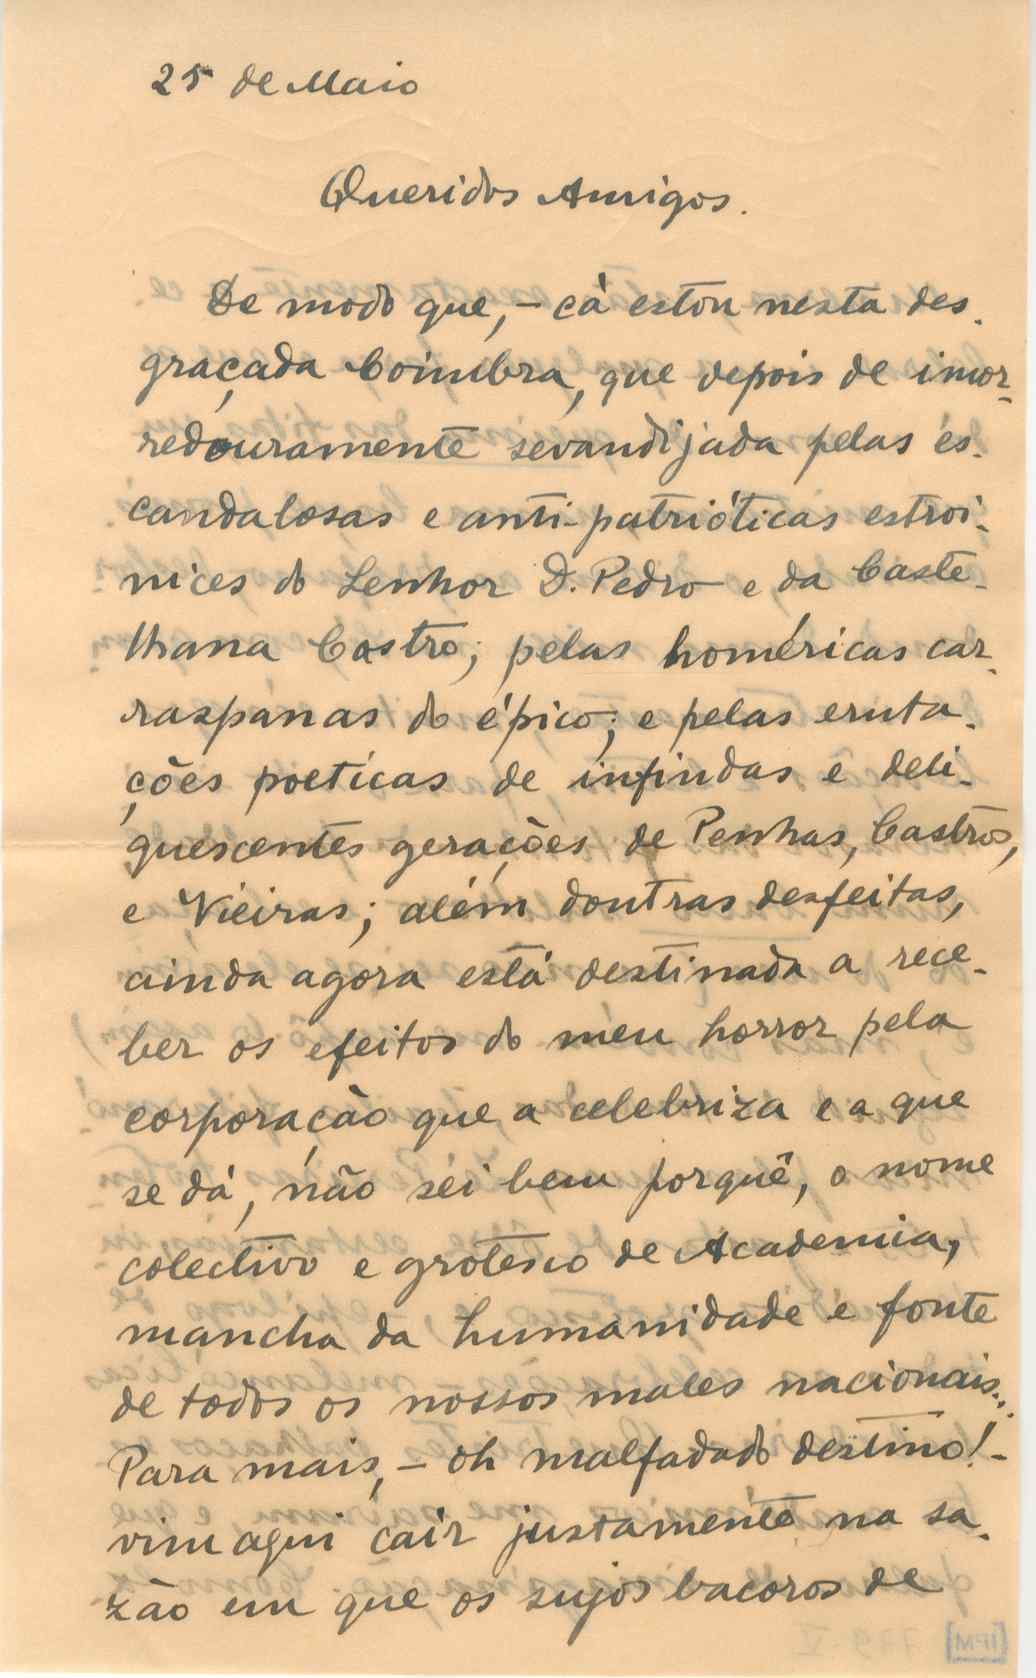 25 de Maio
Queridos Amigos.
De modo que, – cà estou nesta des-
graçada Coimbra, que depois de imor-
redouramente sevandijada pelas es-
candalosas e anti-patrióticas estroi-
nices do Senhor D. Pedro e da Caste-
lhana Castro; pelas homéricas car-
raspanas do épico; e pelas eruta-
ções poeticas de infindas e deli-
quescentes gerações de Penhas, Castros,
e Vieiras; além doutras desfeitas,
ainda agora está destinada a rece-
ber os efeitos do meu horror pela
corporação que a celebriza e a que
se dá, não sei bem porquê, o nome
colectivo e grotesco de Academia,
mancha da humanidade e fonte
de todos os nossos males nacionais...
Para mais, – oh malfadado destino! –
vim aqui cair justamente na sa-
zão em que os sujos bacoros de
[IPM]